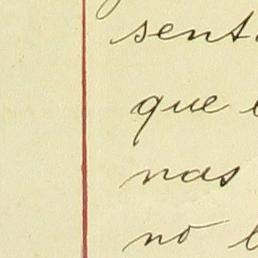 sent
que
nas
no